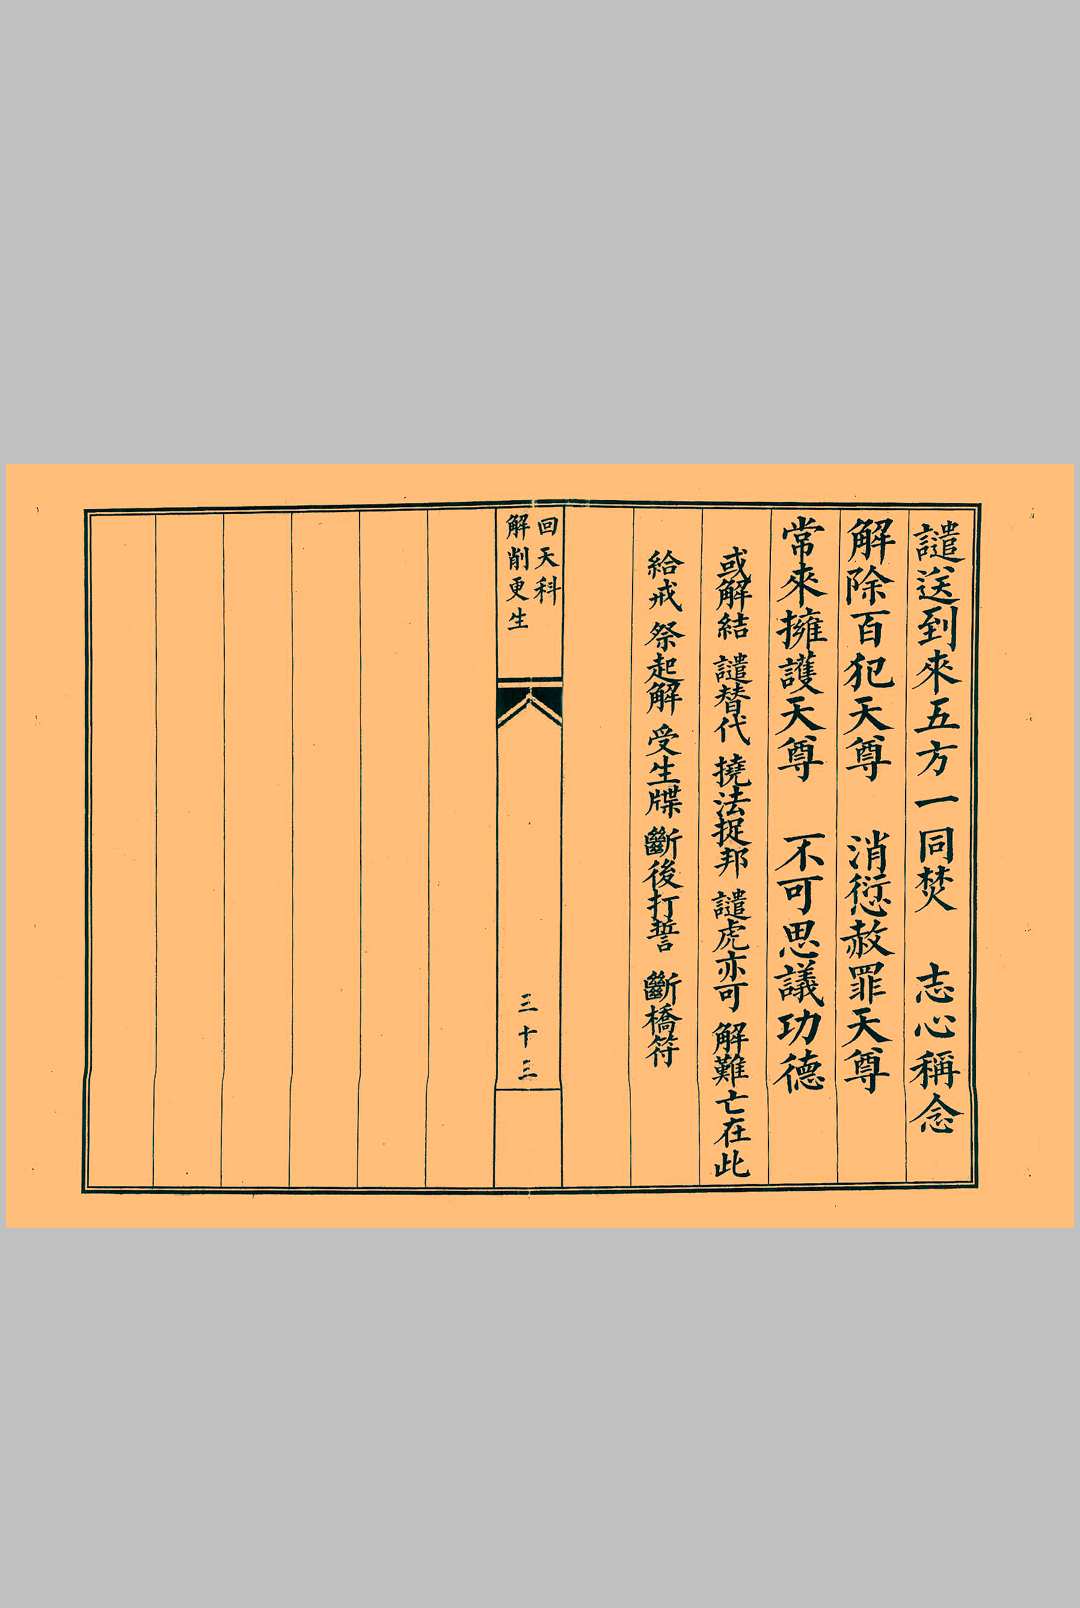 譴送到來五方一同焚　志心稱念
解除百犯天尊　消愆赦罪天尊
常來擁護天尊　不可思議功德
或解結　譴替代　撓法捉邦　譴虎亦可　解難亡在此
給戒　祭起解　受生牒　斷後打誓　斷橋符
回天科
解削更生
三十三